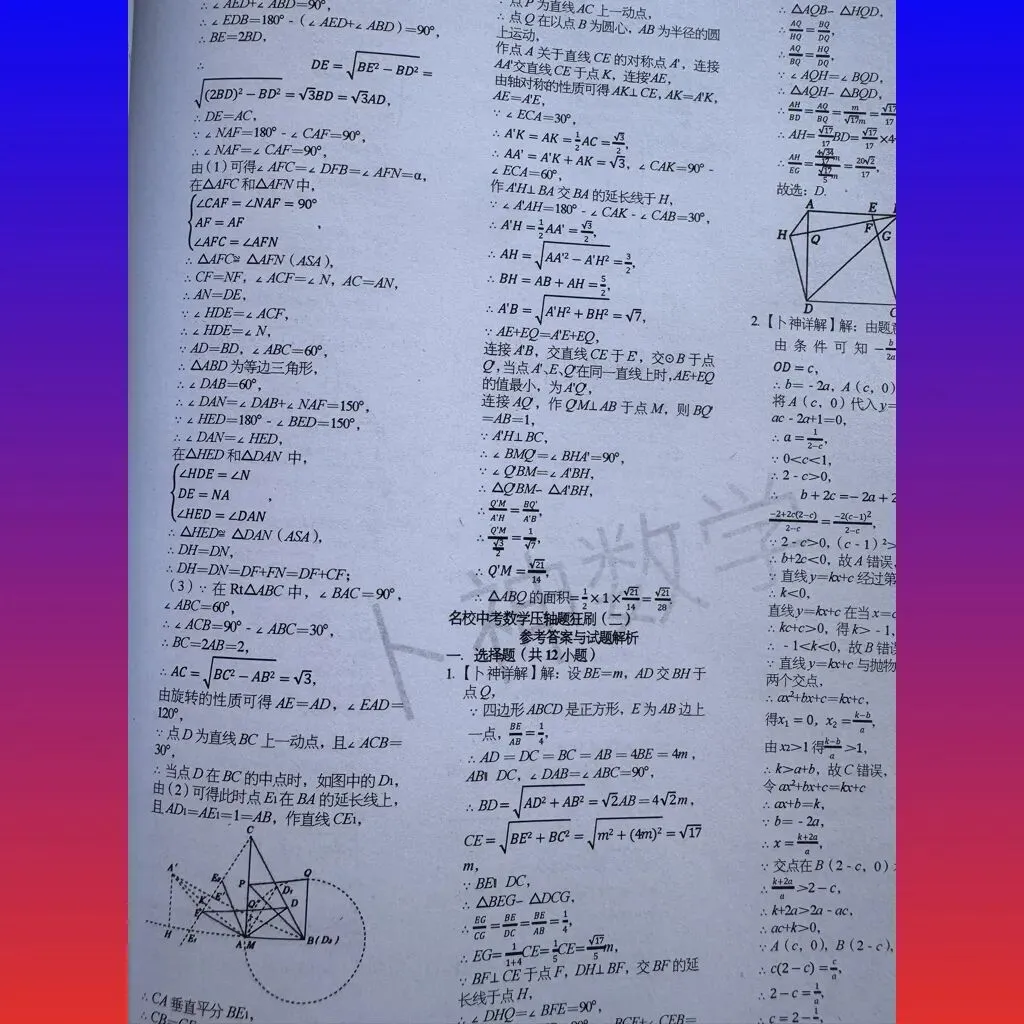 ∴∠AED+∠ABD=90°,
∴∠EDB=180°-(∠AED+∠ABD)=90°,
∴BE=2BD,
∴ DE=√(BE²−BD²)=
√((2BD)²−BD²)=√3BD=√3AD,
∴DE=AC,
∵∠NAF=180°-∠CAF=90°,
∴∠NAF=∠CAF=90°,
由(1)可得∠AFC=∠DFB=∠AFN=α,
在△AFC和△AFN中,
∠CAF=∠NAF=90°
AF=AF ,
∠AFC=∠AFN
∴△AFC≌△AFN(ASA),
∴CF=NF,∠ACF=∠N,AC=AN,
∴AN=DE,
∵∠HDE=∠ACF,
∴∠HDE=∠N,
∵AD=BD,∠ABC=60°,
∴△ABD为等边三角形,
∴∠DAB=60°,
∴∠DAN=∠DAB+∠NAF=150°,
∵∠HED=180°-∠BED=150°,
∴∠DAN=∠HED,
在△HED和△DAN中,
∠HDE=∠N
DE=NA ,
∠HED=∠DAN
∴△HED≌△DAN(ASA),
∴DH=DN,
∴DH=DN=DF+FN=DF+CF;
(3)∵在Rt△ABC中,∠BAC=90°,
∠ABC=60°,
∴∠ACB=90°-∠ABC=30°,
∴BC=2AB=2,
∴AC=√(BC²−AB²)=√3,
由旋转的性质可得AE=AD,∠EAD=
120°,
∵点D为直线BC上一动点,且∠ACB=
30°,
∴当点D在BC的中点时,如图中的D₁,
由(2)可得此时点E₁在BA的延长线上,
且AD₁=AE₁=1=AB,作直线CE₁,
C
A′ E₂ P D₁ Q
K E Q′ D
F
H E₁ A M B(D₂)
∴CA垂直平分BE₁,
∴点P为直线AC上一动点,
∴点Q在以点B为圆心,AB为半径的圆
上运动,
作点A关于直线CE的对称点A′,连接
AA′交直线CE于点K,连接A′E,
由轴对称的性质可得AK⊥CE,AK=A′K,
AE=A′E,
∵∠ECA=30°,
∴A′K=AK=1/2AC=√3/2,
∴AA′=A′K+AK=√3,∠CAK=90°-
∠ECA=60°,
作A′H⊥BA交BA的延长线于H,
∵∠A′AH=180°-∠CAK-∠CAB=30°,
∴A′H=1/2AA′=√3/2,
∴AH=√(AA′²−A′H²)=3/2,
∴BH=AB+AH=5/2,
∴A′B=√(A′H²+BH²)=√7,
∵AE+EQ=A′E+EQ,
连接A′B,交直线CE于E′,交⊙B于点
Q′,当点A′、E、Q在同一直线上时,AE+EQ
的值最小,为A′Q′,
连接AQ′,作Q′M⊥AB于点M,则BQ′
=AB=1,
∵A′H⊥BC,
∴∠BMQ′=∠BHA′=90°,
∵∠Q′BM=∠A′BH,
∴△Q′BM~△A′BH,
∴Q′M/A′H=BQ′/A′B,
∴Q′M/(√3/2)=1/√7,
∴Q′M=√21/14,
∴△ABQ的面积=1/2×1×√21/14=√21/28.
名校中考数学压轴题狂刷(二)
参考答案与试题解析
一.选择题(共12小题)
1.【卜神详解】解:设BE=m,AD交BH于
点Q,
∵四边形ABCD是正方形,E为AB边上
一点,BE/AB=1/4,
∴AD=DC=BC=AB=4BE=4m,
AB∥DC,∠DAB=∠ABC=90°,
∴BD=√(AD²+AB²)=√2AB=4√2m,
CE=√(BE²+BC²)=√(m²+(4m)²)=√17
m,
∵BE∥DC,
∴△BEG~△DCG,
∴EG/CG=BE/DC=BE/AB=1/4,
∴EG=1/(1+4)CE=1/5CE=√17/5m,
∵BF⊥CE于点F,DH⊥BF,交BF的延
长线于点H,
∴∠DHQ=∠BFE=90°,
∴△AQB~△HQD,
∴AQ/HQ=BQ/DQ,
∴AQ/BQ=HQ/DQ,
∵∠AQH=∠BQD,
∴△AQH~△BQD,
∴AH/BD=AQ/BQ=m/√17m=√17/17
∴AH=√17/17BD=√17/17×4
∴AH/EG=(4√34/17m)/(√17/5m)=20√2/17
故选:D.
A E
H Q F G
D
2.【卜神详解】解:由题意
由条件可知-b/2a
OD=c,
∴b=-2a,A(c,0)
将A(c,0)代入y=
ac-2a+1=0,
∴a=1/(2−c),
∵0<c<1,
∴2-c>0,
∴ b+2c=-2a+2
(−2+2c(2−c))/(2−c)=−2(c−1)²/(2−c),
∵2-c>0,(c-1)²>
∴b+2c<0,故A错误,
∵直线y=kx+c经过第
∴k<0,
直线y=kx+c在当x=
∴kc+c>0,得k>-1,
∴-1<k<0,故B错误
∵直线y=kx+c与抛物
两个交点,
∴ax²+bx+c=kx+c,
得x₁=0,x₂=(k−b)/a,
由x₂>1得(k−b)/a>1,
∴k>a+b,故C错误,
令ax²+bx+c=kx+c
∴ax+b=k,
∵b=-2a,
∴x=(k+2a)/a,
∵交点在B(2-c,0)
∴(k+2a)/a>2−c,
∴k+2a>2a-ac,
∴ac+k>0,
∵A(c,0),B(2-c),
∴c(2−c)=c/a,
∴2−c=1/a,
∴c=2−1/a,
卜神数学